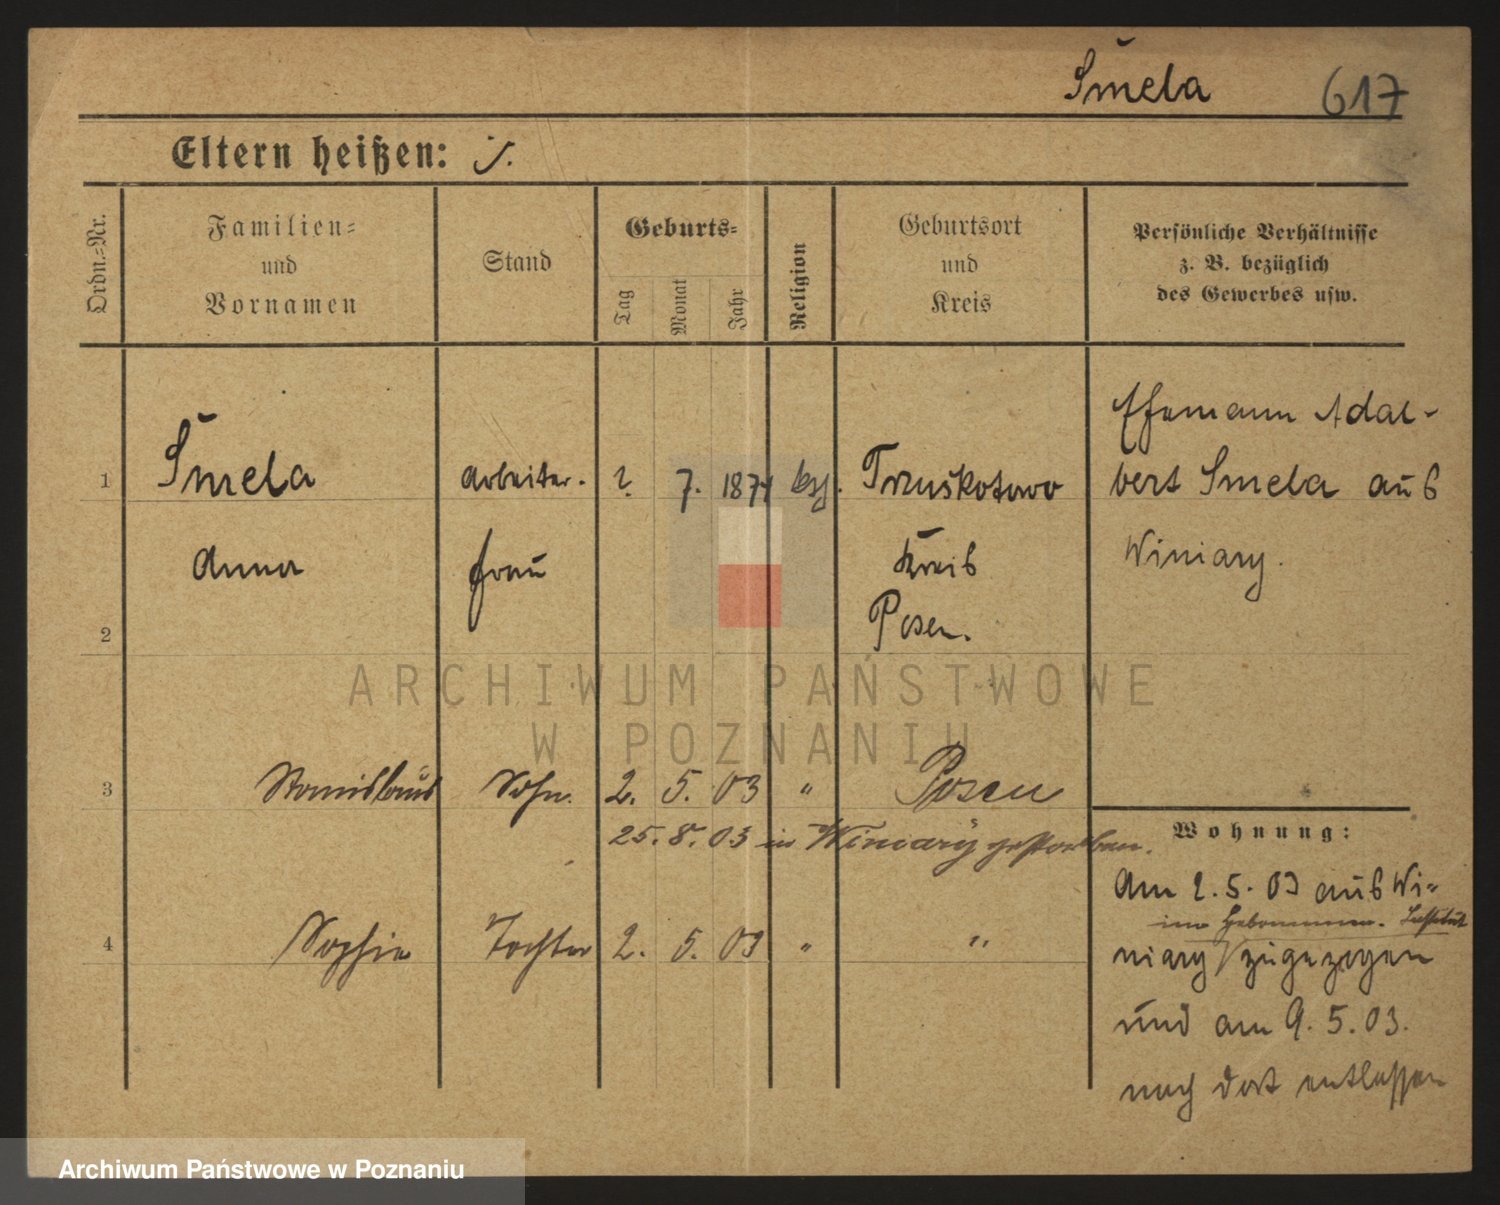 Šmela 617
Eltern heißen:
Ordn.-Nr.
Familien-
und
Vornamen
Stand
Geburts-
Tag
Monat
Jahr
Religion
Geburtsort
und
Kreis
Persönliche Verhältnisse
z. B. bezüglich
des Gewerbes usw.
Ehemann Adal-
1 Šmela Arbeiter- ?. 7. 1874 ksl. Trzuskotowo bert Smela aus
Anna frau Kreis Winiary.
2 Posen.
ARCHIWUM PAŃSTWOWE
W POZNANIU
3 Stanislaus Sohn. 2. 5. 03 " Posen
25. 8. 03 in Winiary gestorben.
Wohnung:
Am 2. 5. 03 aus Wi-
im Hebammen-Institut
4 Sophie Tochter 2. 5. 03 " "
niary / zugezogen
und am 9. 5. 03.
nach dort entlassen
Archiwum Państwowe w Poznaniu